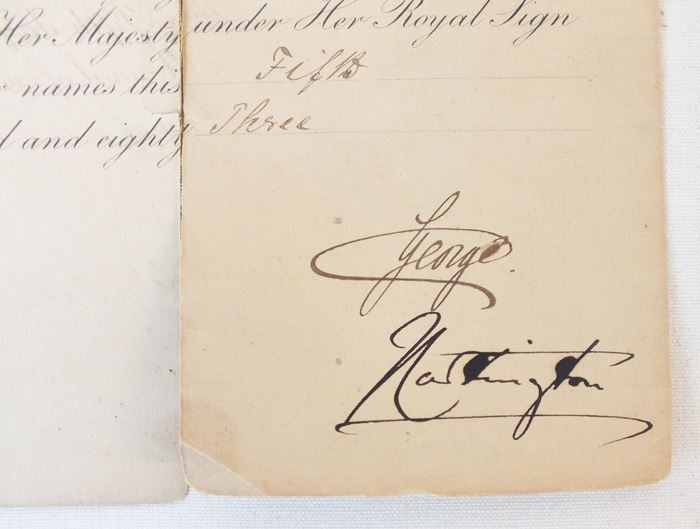 Her Majesty under Her Royal Sign
names this Fifth
and eighty Three
George
Hartington